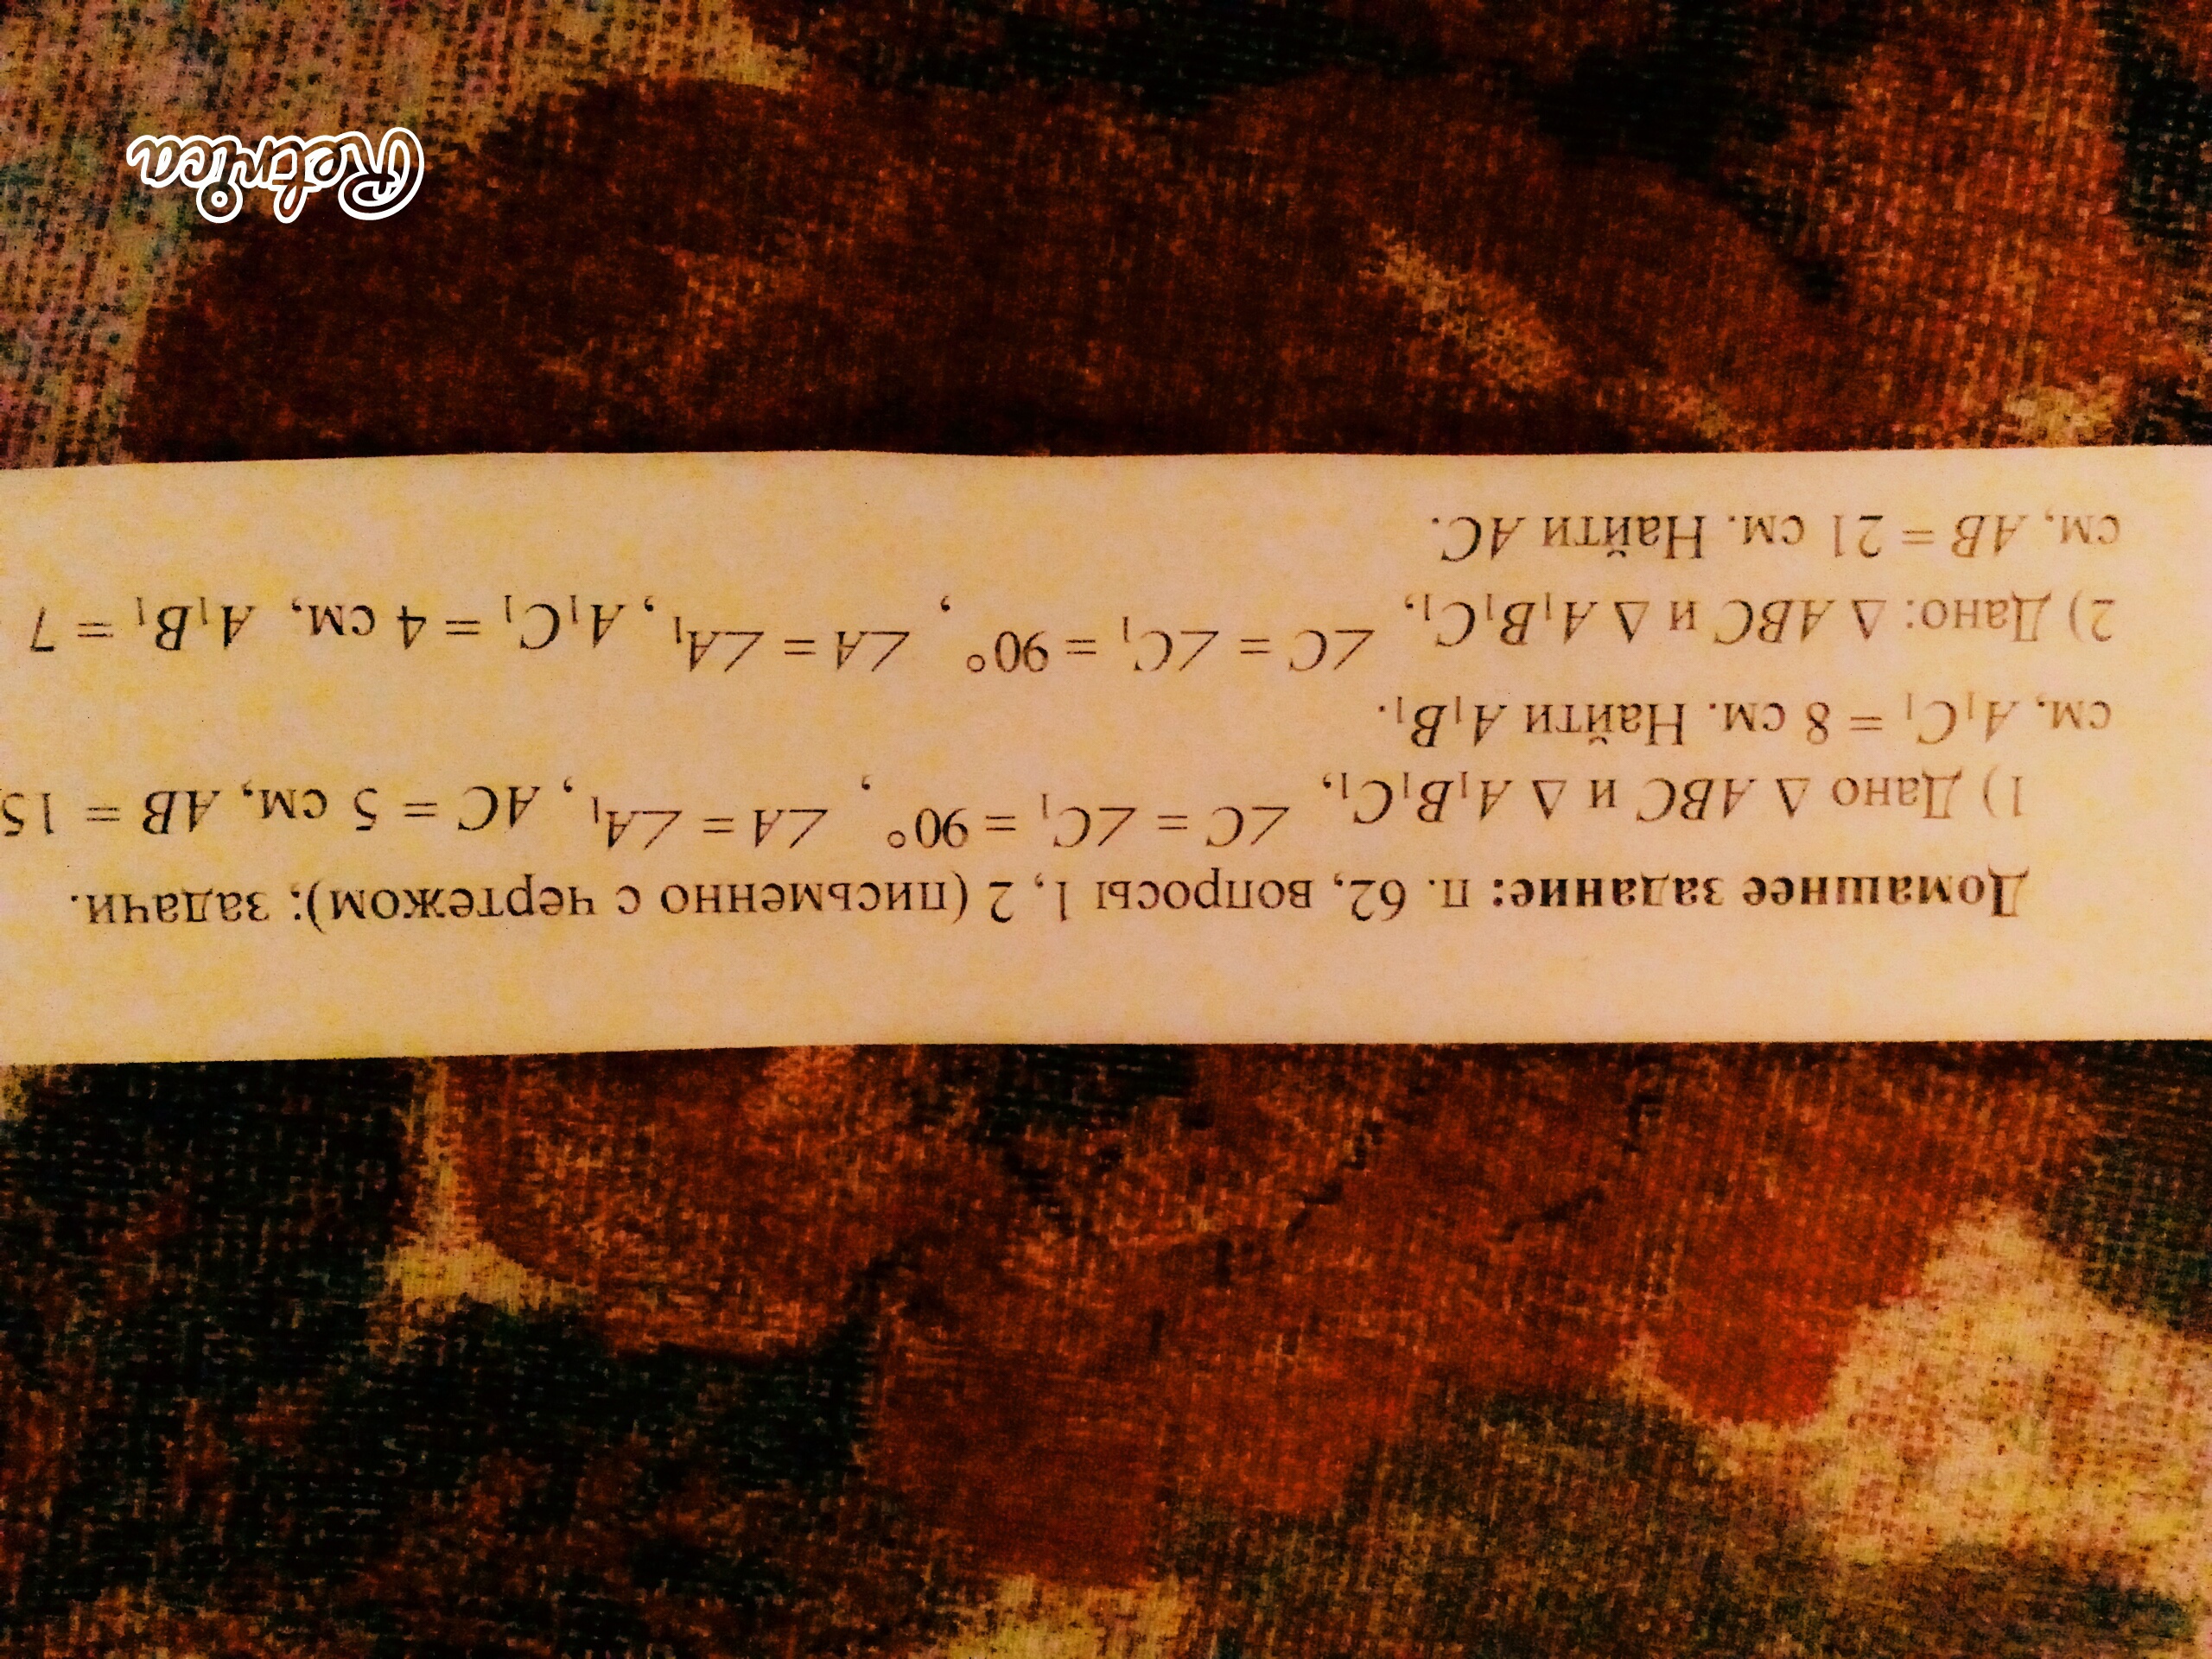 Домашнее задание: п. 62, вопросы 1, 2 (письменно с чертежом); задачи.
1) Дано Δ ABC и Δ A₁B₁C₁, ∠C = ∠C₁ = 90°, ∠A = ∠A₁, AC = 5 см, AB = 15
см, A₁C₁ = 8 см. Найти A₁B₁.
2) Дано: Δ ABC и Δ A₁B₁C₁, ∠C = ∠C₁ = 90°, ∠A = ∠A₁, A₁C₁ = 4 см, A₁B₁ = 7
см, AB = 21 см. Найти AC.
Retrica